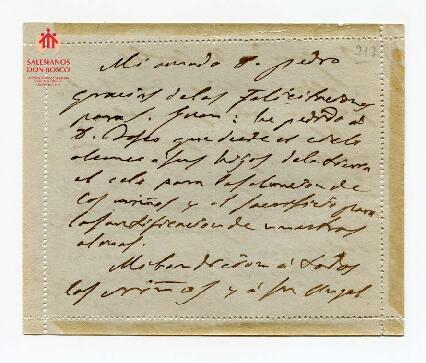 SALESIANOS
DON BOSCO
217
Mi amado D. Pedro
gracias de las felicitaciones
para S. Juan: he pedido a
D. Bosco que desde el cielo
alcance a sus hijos de la tierra
el celo para la salvacion de
los niños y el sacrificio para
la santificacion de nuestras
almas.
Mi bendicion á todos
los niños y á su Angel